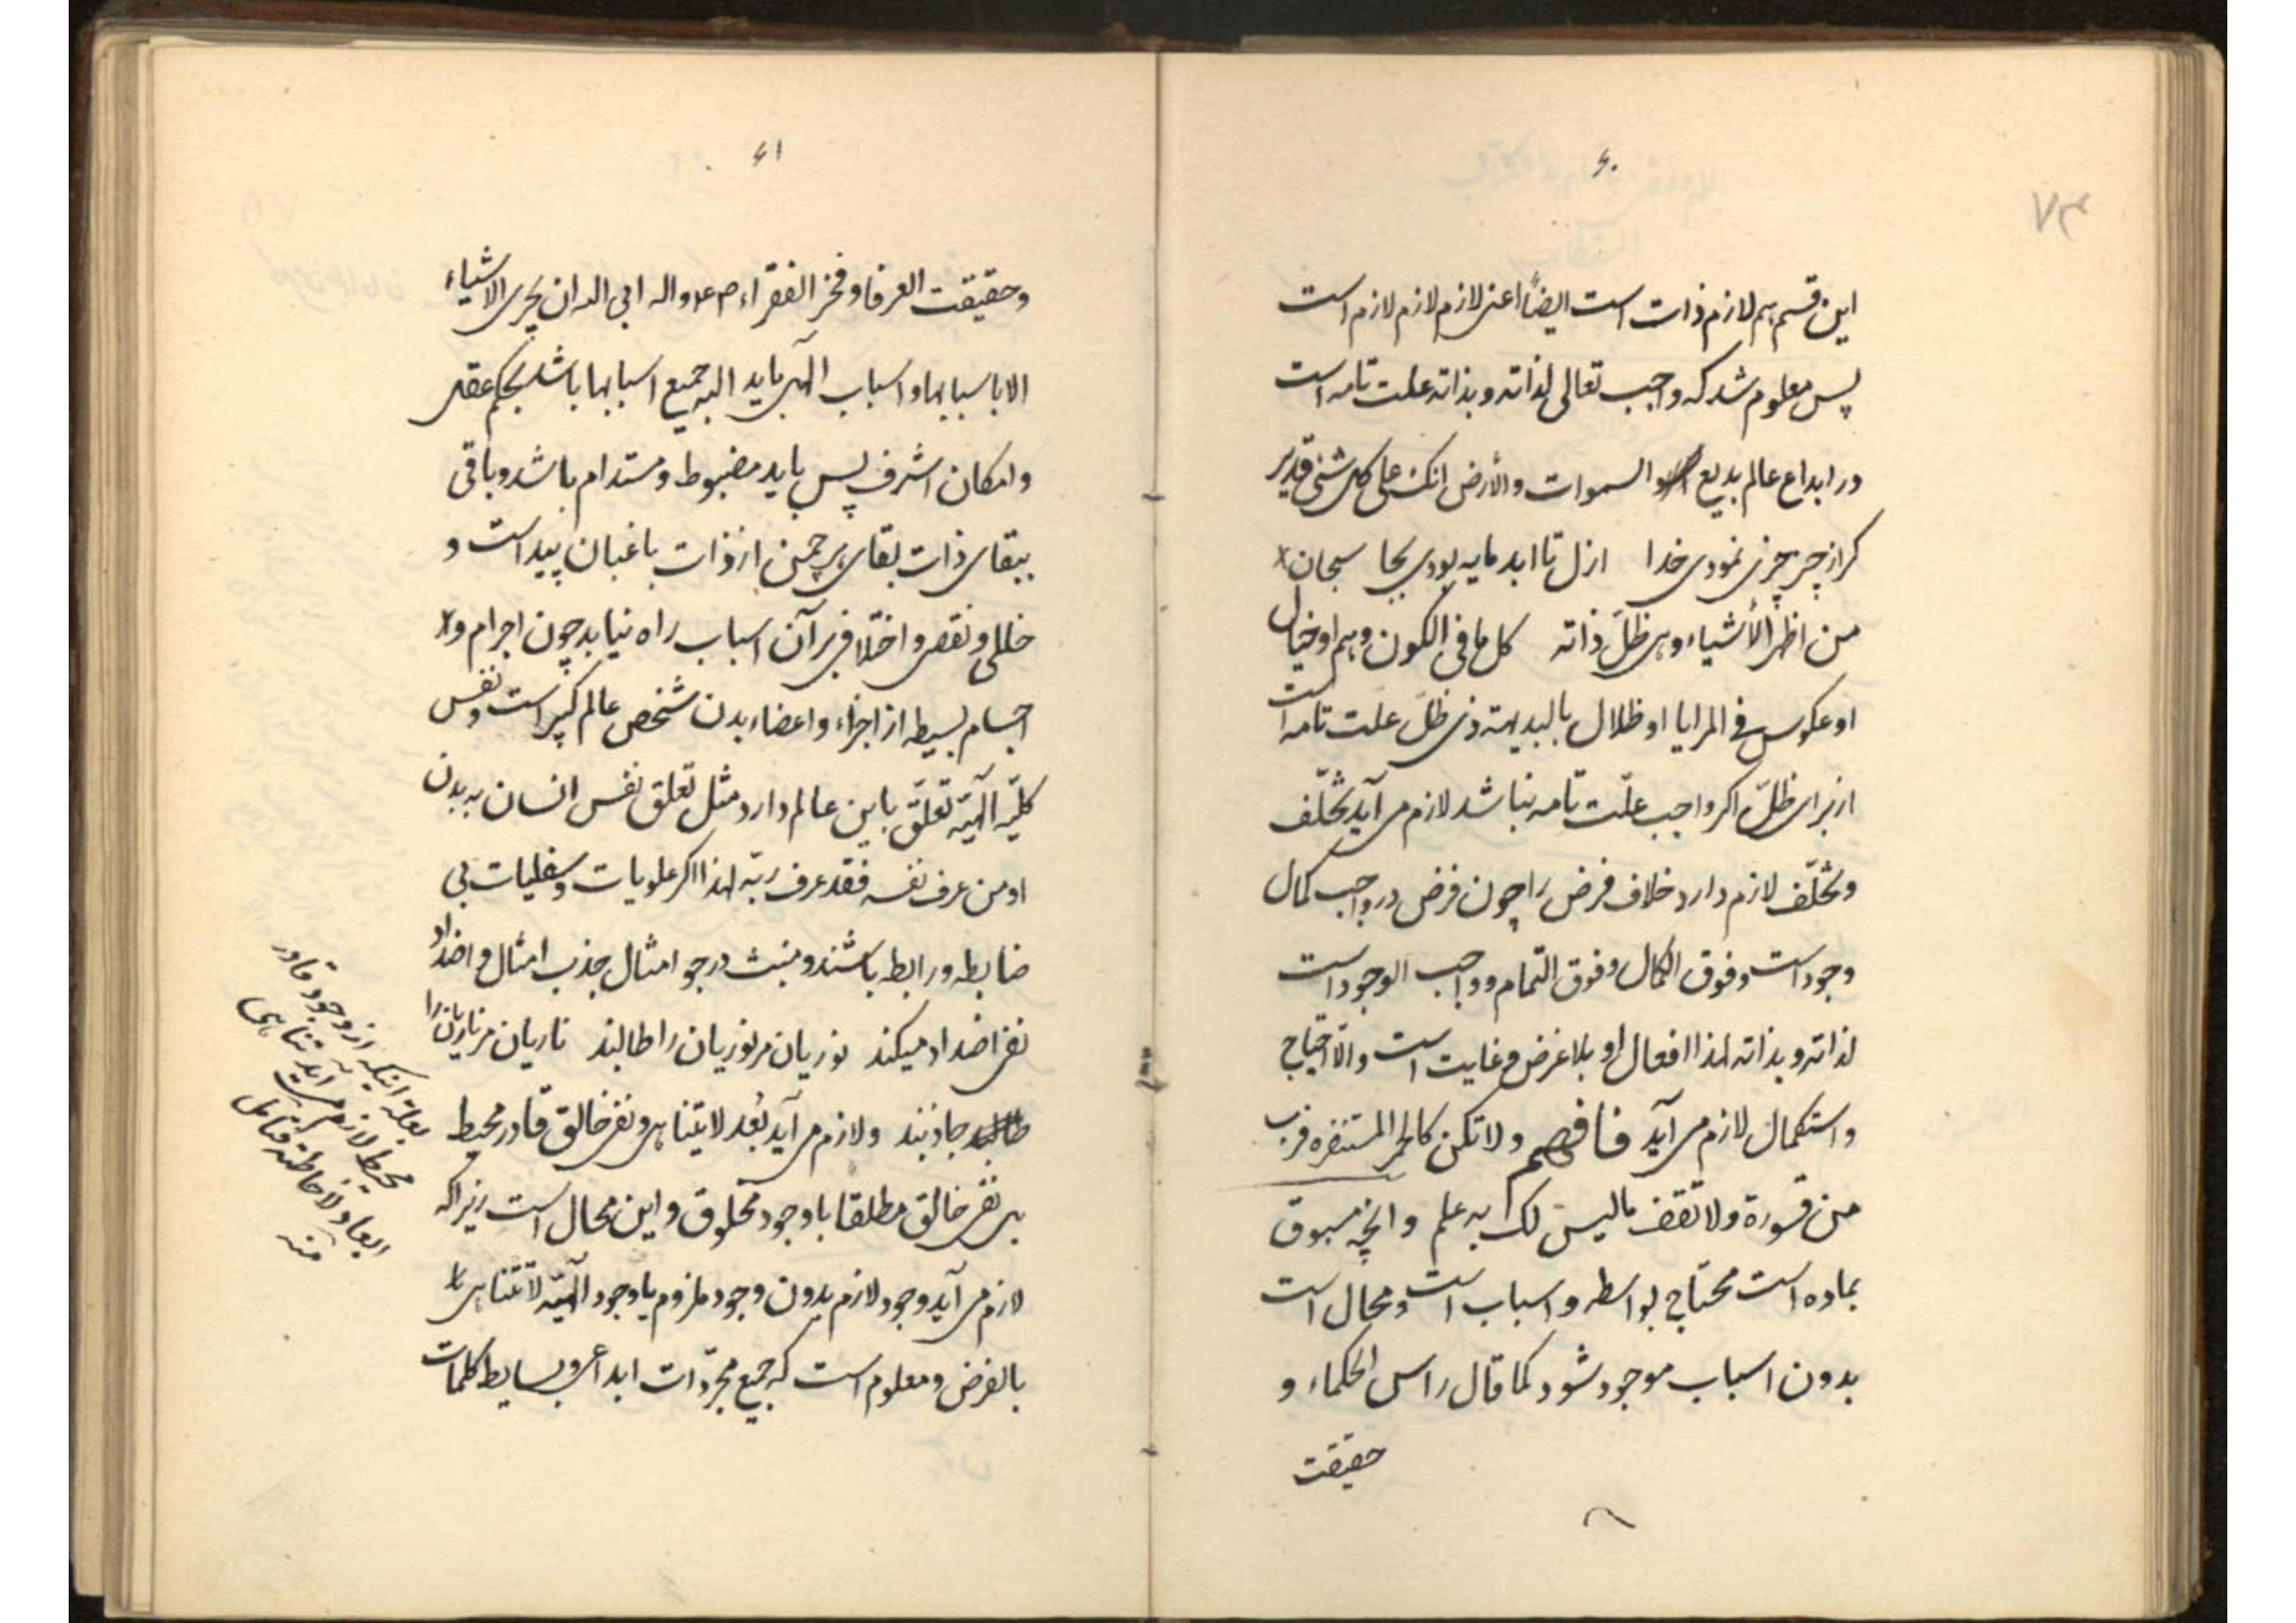 ۶۰
۷۳
این قسم هم لازم ذات است ایضاً اعنی لازم لازم لازم است
پس معلوم شد که واجب تعالی لذاته و بذاته علت تامه است
در ابداع عالم بدیع السموات والأرض انک علی کل شئ قدیر
کر از چیز چیزی نمودی خدا ازل تا ابد مایه بودی بجا سبحان
من اظهر الأشیاء وهی ظلّ ذاته کل ما فی الکون وهم او خیال
او عکوس فی المرایا او ظلال بالبدیهة ذی ظلّ علت تامه است
از برای ظلّ اکر واجب علّت تامه نباشد لازم می آید تخلّف
وتخلّف لازم دارد خلاف فرض را چون فرض در واجب کمال
وجود است وفوق الکمال وفوق التمام وواجب الوجود است
لذاته و بذاته لهذا افعال او بلا غرض و غایت است والّا احتیاج
واستکمال لازم می آید فافهم ولا تکن کالحمر المستنفره فرت
من قسورة ولا تقف مالیس لک به علم وانچه مسبوق
بماده است محتاج بواسطه و اسباب است و محال است
بدون اسباب موجود شود کما قال راس الحکماء و
حقیقت
۶۱
وحقیقت العرفا وفخر الفقراء ص ع واله ابی الله ان یجری الاشیاء
الا باسبابها و اسباب الهی باید البه جمیع اسبابها باشد بحکم عقلی
وامکان اشرف پس باید مضبوط و مستدام باشد و باقی
ببقای ذات بقای پرچمن از ذات باغبان پیداست و
خللی و نقصی و اختلافی بر آن اسباب راه نیابد چون اجرام و
اجسام بسیطه از اجزاء و اعضاء بدن شخص عالم کبیر است و نفس
کلیّه الهیّه تعلّق باین عالم دارد مثل تعلق نفس انسان به بدن
او من عرف نفسه فقد عرف ربّه لهذا اکر علویات و سفلیات بی
ضابطه و رابطه باشند و منبث در جو امثال جذب امثال و اضداد
نفی اضداد میکند نوریان مر نوریان را طالبند ناریان مر ناریان را
جاذبند ولازم می آید بُعد لایتناهی و نفی خالق قادر محیط
بل نفی خالق مطلقا با وجود مخلوق و این محال است زیرا که
لازم می آید وجود لازم بدون وجود ملزوم یا وجود الهیّه لاتتناهی
بالفرض و معلوم است که جمیع مجرّدات ابداعی و بسایط کلمات
بعلة اینکه از وجود قادر
محیط لازم می آید تناهی
ابعاد لاحاطته فتأمل
منه